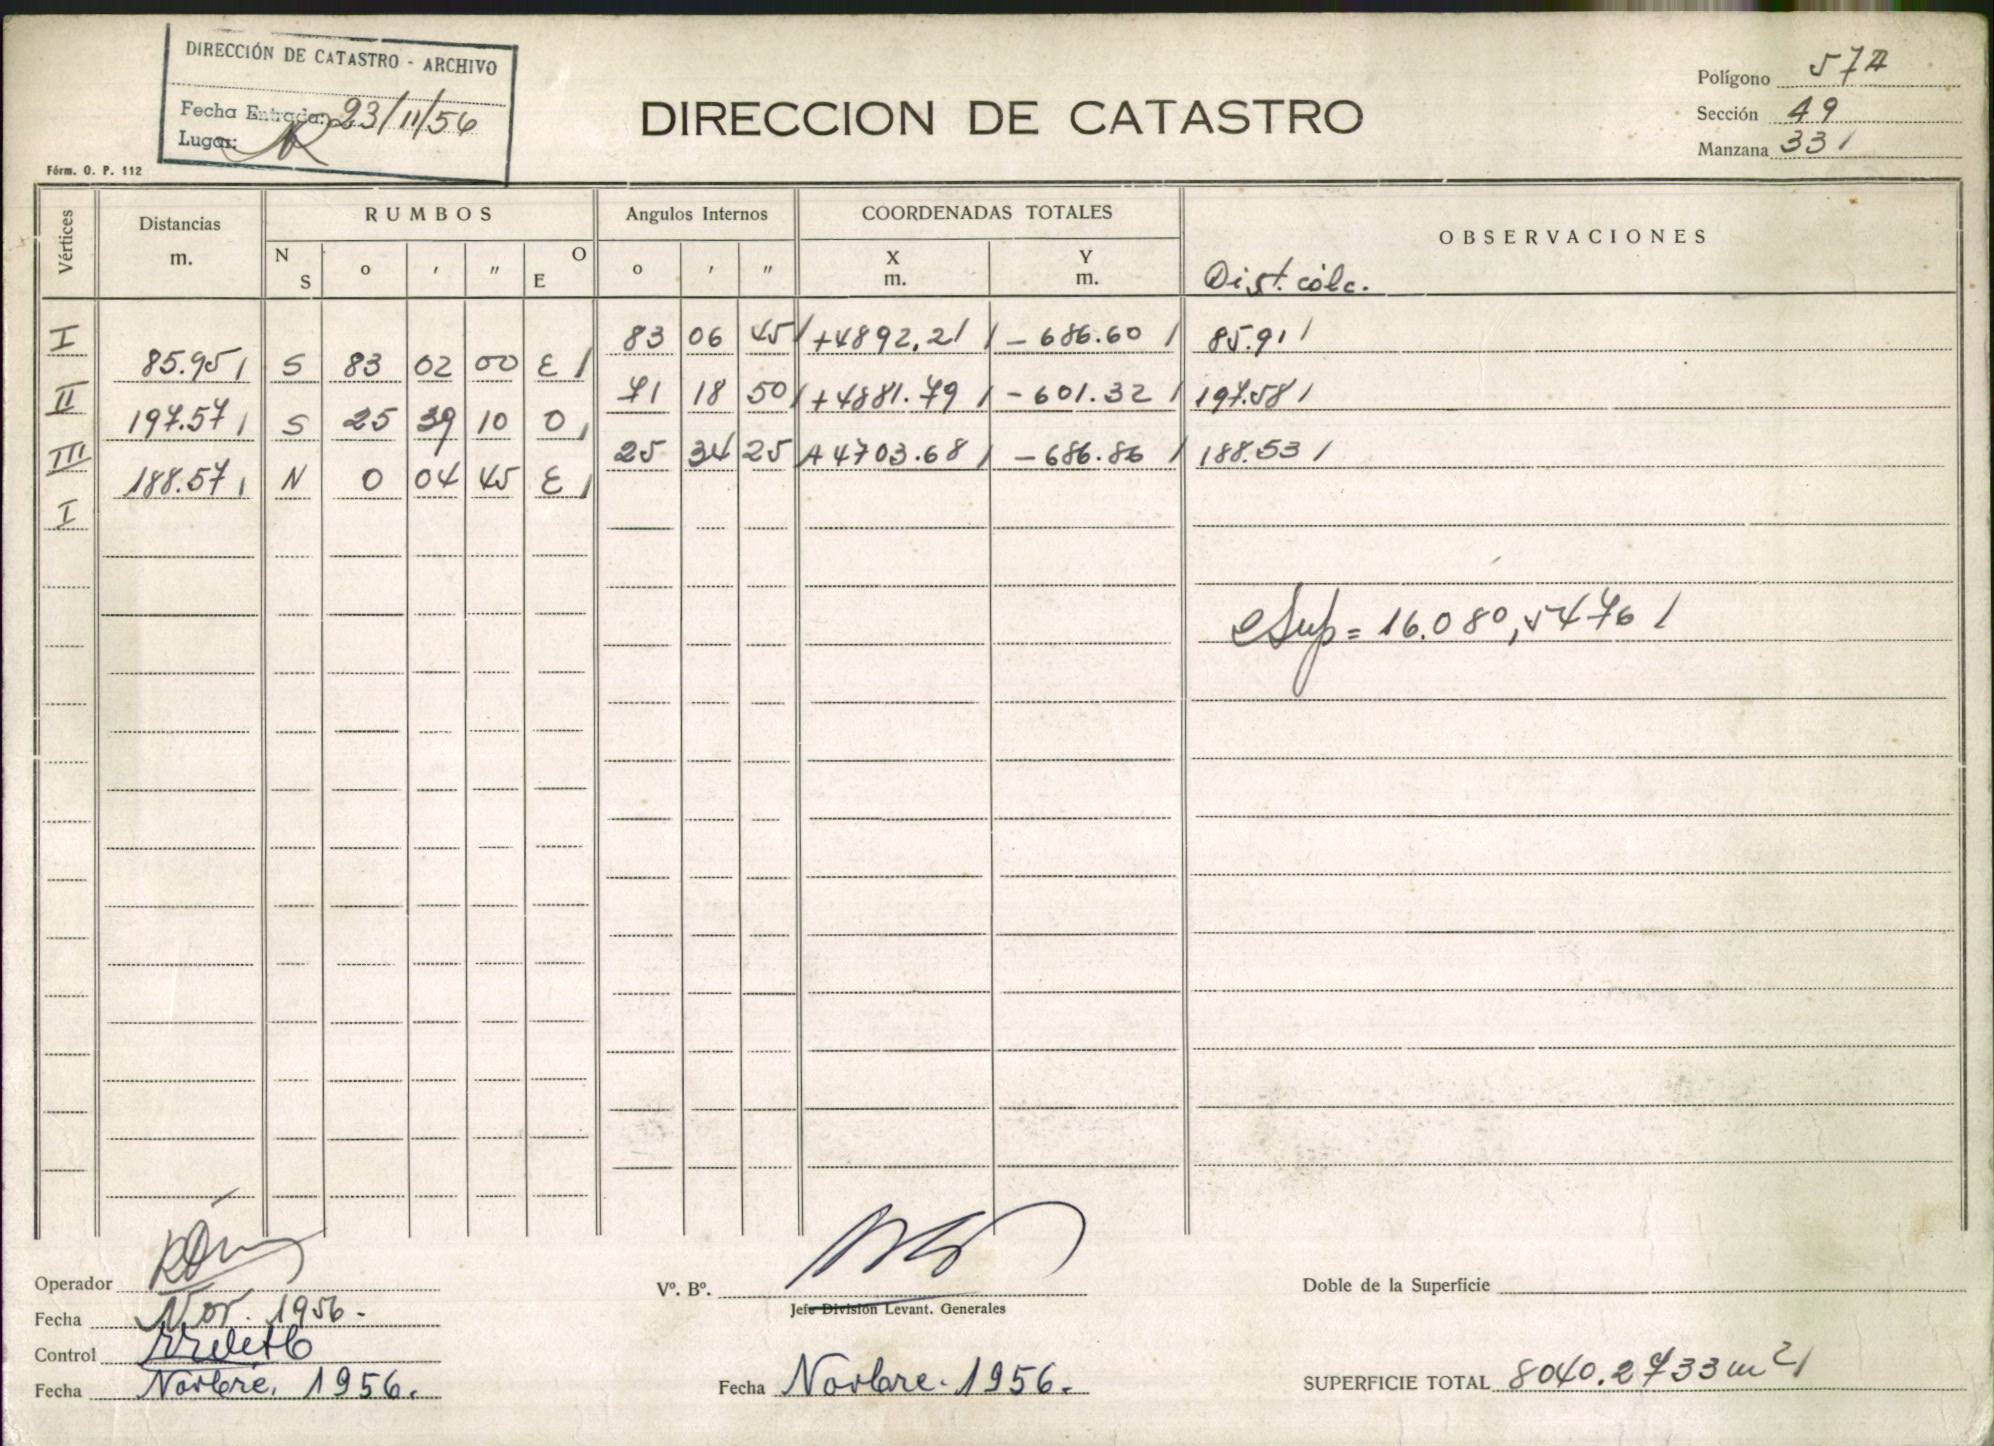 DIRECCIÓN DE CATASTRO - ARCHIVO
Fecha Entrada: 23/11/56
Lugar:
DIRECCION DE CATASTRO
Polígono
Sección 49
Manzana 331
Fórm. O. P. 112
Vértices
Distancias
m.
RUMBOS
N S o ' " E O
Angulos Internos
o ' "
COORDENADAS TOTALES
X
m.
Y
m.
OBSERVACIONES
Dist. cálc.
I 83 06 45 +4892.21 -686.60 85.91
85.95 S 83 02 00 E
II 71 18 50 +4881.79 -601.32 197.58
197.57 S 25 39 10 O
III 25 34 25 +4703.68 -686.86 188.53
188.57 N 0 04 45 E
I
2Sup = 16.080,5476
Operador
Fecha Nov. 1956.-
Control
Fecha Novbre. 1956.
Vº. Bº.
Jefe División Levant. Generales
Fecha Novbre. 1956.
Doble de la Superficie
SUPERFICIE TOTAL 8040.2733 m2